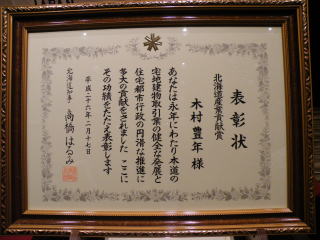 表彰状
北海道産業貢献賞
木村豊年 様
あなたは永年にわたり本道の
宅地建物取引業の健全な発展と
住宅都市行政の円滑な推進に
多大の貢献をされました ここに
その功績をたたえ表彰します
平成二十六年二月十七日
北海道知事 高橋はるみ